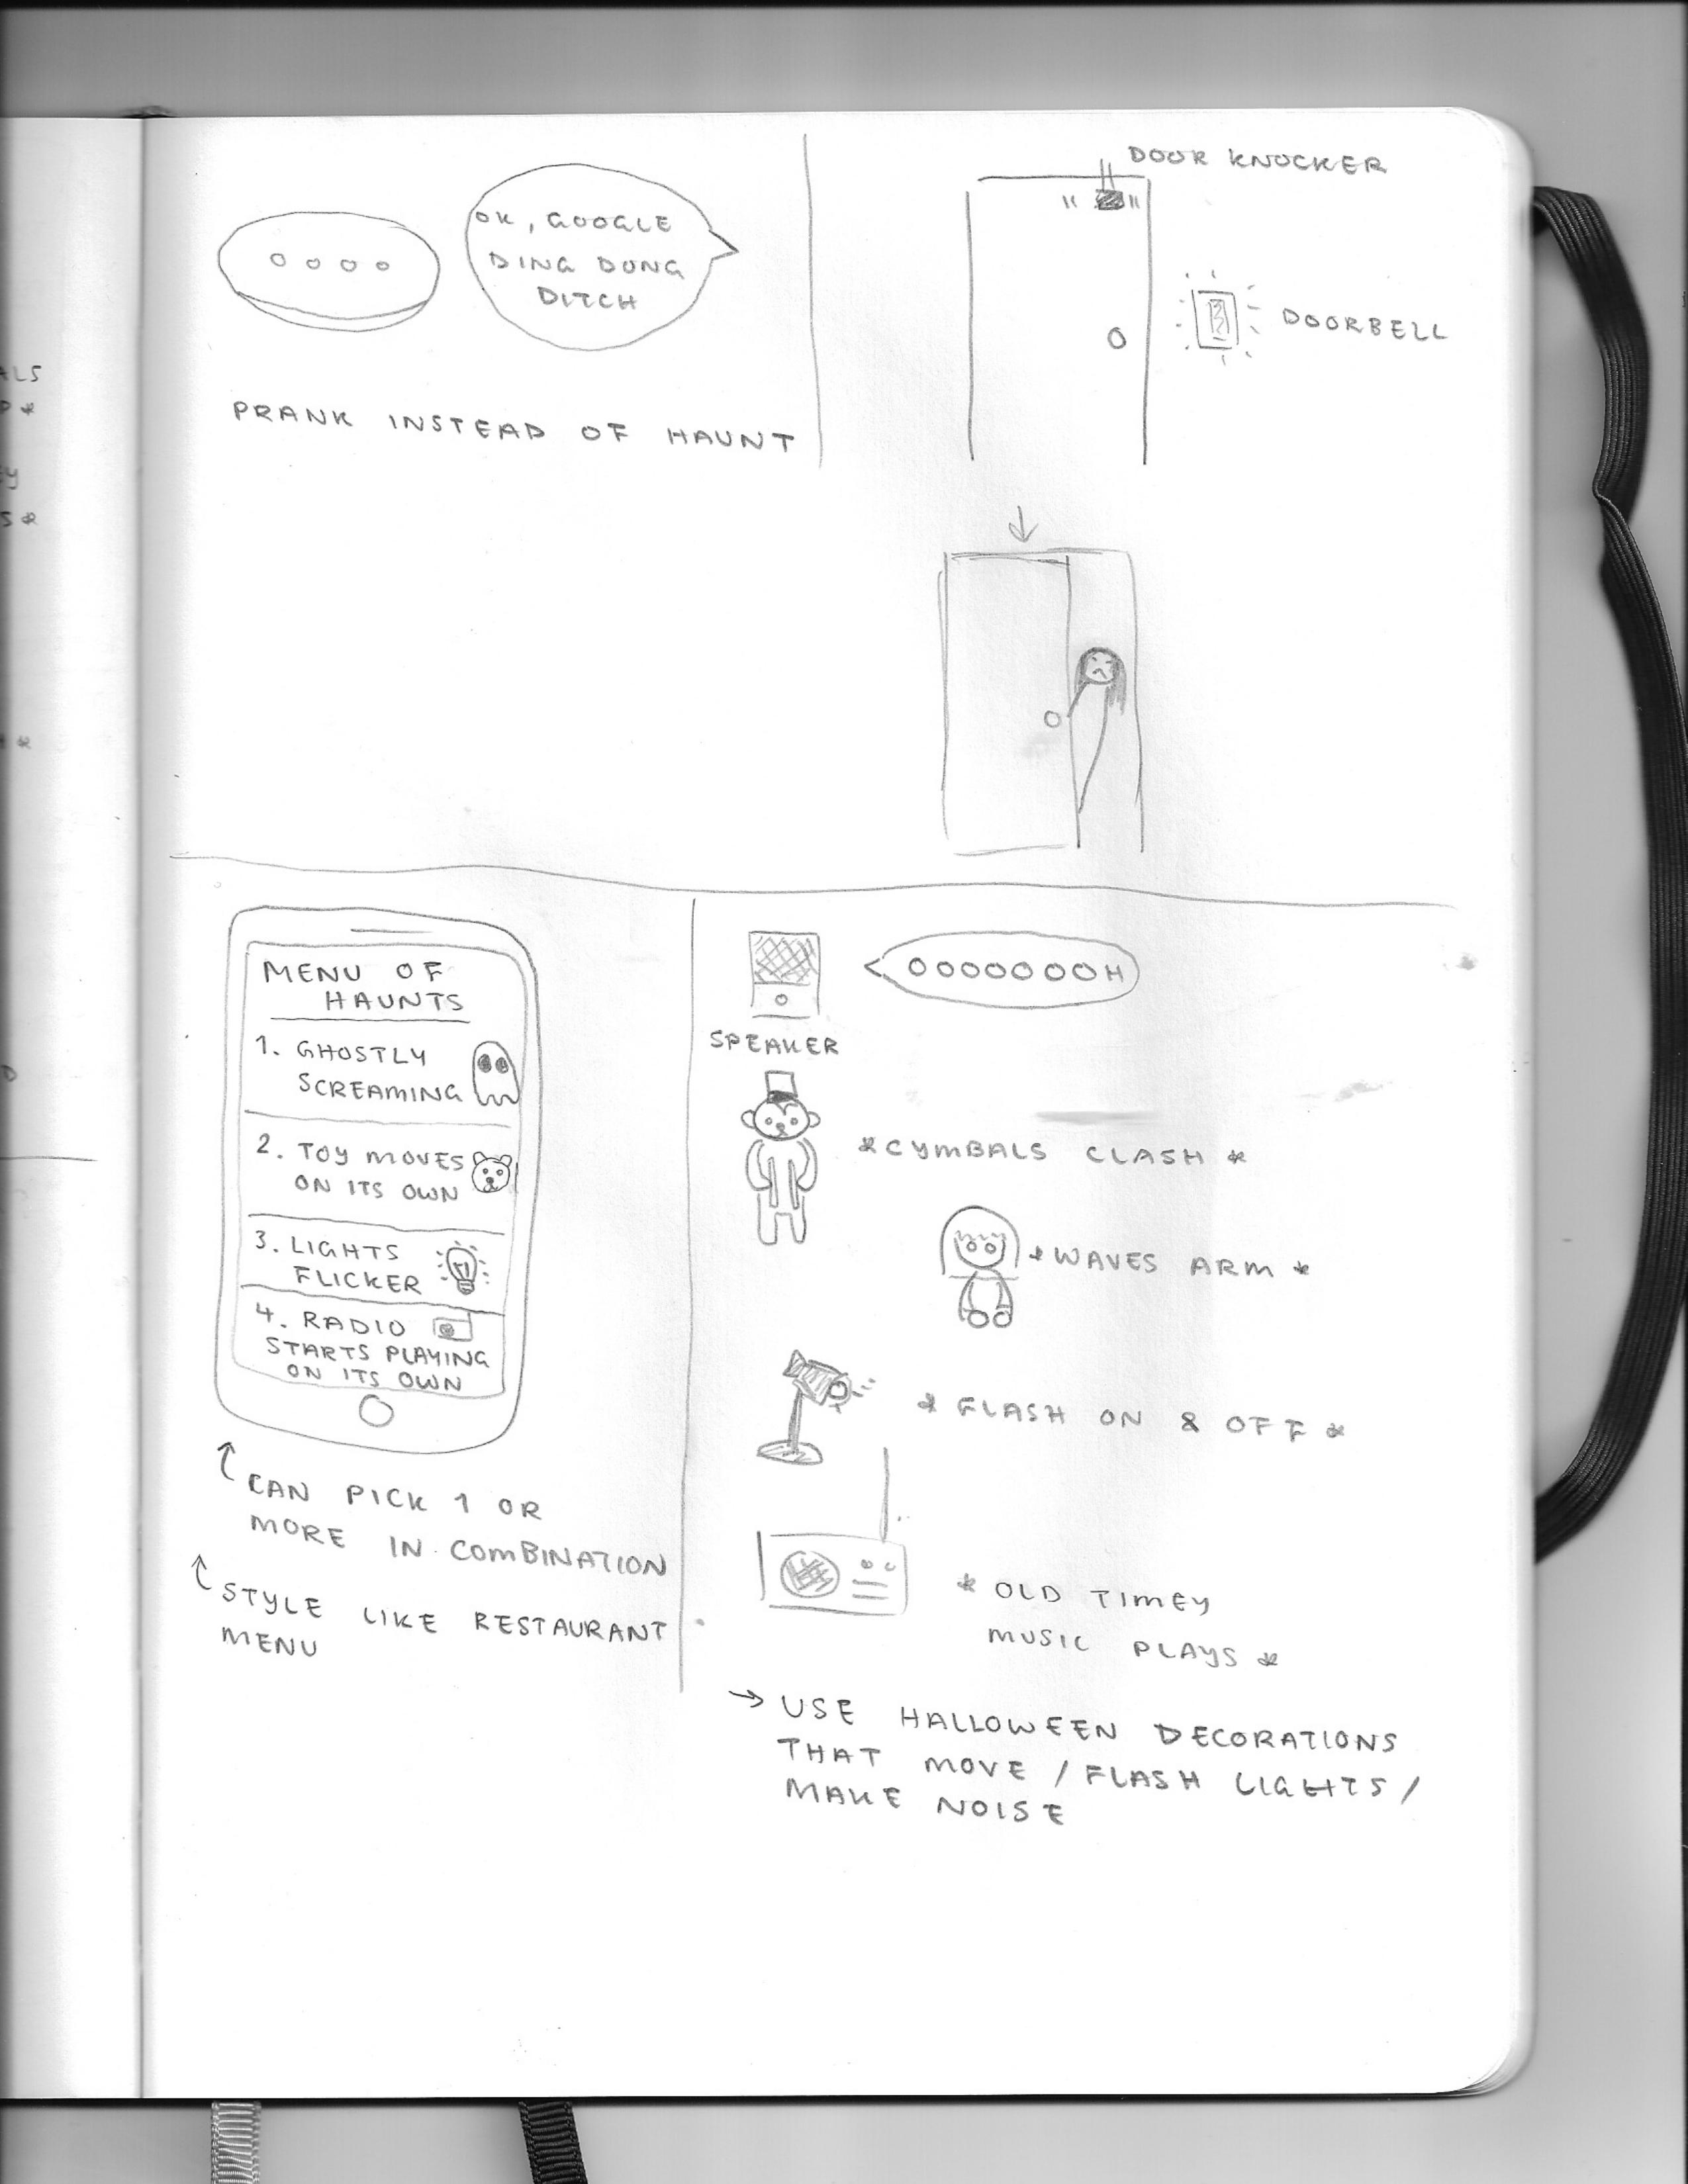 OK, GOOGLE
DING DONG
DITCH
PRANK INSTEAD OF HAUNT
DOOR KNOCKER
DOORBELL
MENU OF
HAUNTS
1. GHOSTLY
SCREAMING
2. TOY MOVES
ON ITS OWN
3. LIGHTS
FLICKER
4. RADIO
STARTS PLAYING
ON ITS OWN
CAN PICK 1 OR
MORE IN COMBINATION
STYLE LIKE RESTAURANT
MENU
OOOOOOOH
SPEAKER
*CYMBALS CLASH*
*WAVES ARM*
*FLASH ON & OFF*
*OLD TIMEY
MUSIC PLAYS*
→ USE HALLOWEEN DECORATIONS
THAT MOVE / FLASH LIGHTS /
MAKE NOISE